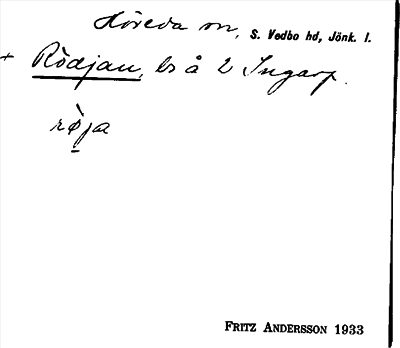 Höreda sn, S. Vedbo hd, Jönk. l.
+ Rödjan, ls å 2 Ingarp.
röja
FRITZ ANDERSSON 1933